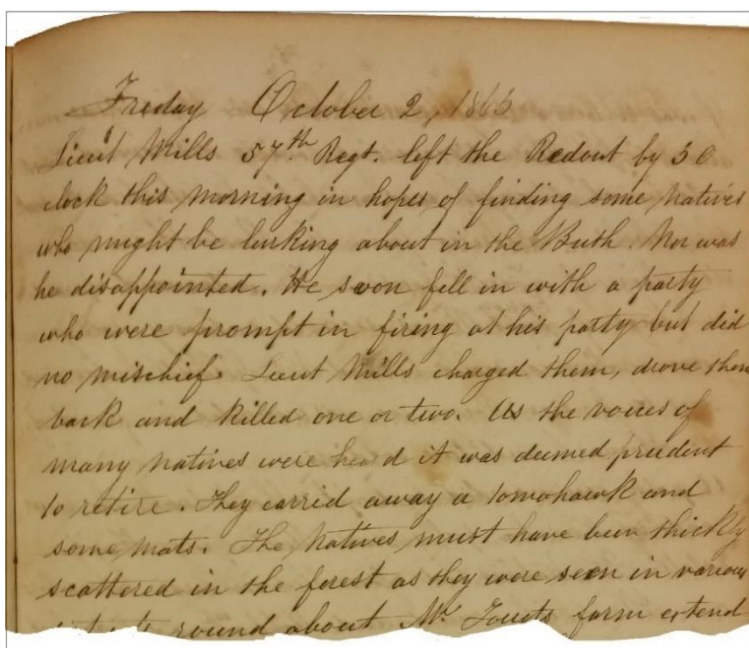 Friday October 2, 1863
Lieut Mills 57th Regt. left the Redout by 5 O
clock this morning in hopes of finding some natives
who might be lurking about in the Bush. Nor was
he disappointed. He soon fell in with a party
who were prompt in firing at his party but did
no mischief. Lieut Mills charged them, drove them
back and killed one or two. As the voices of
many natives were heard it was deemed prudent
to retire. They carrid away a tomohawk and
some mats. The natives must have been thickly
scattered in the forest as they were seen in various
round about Mr farm extend